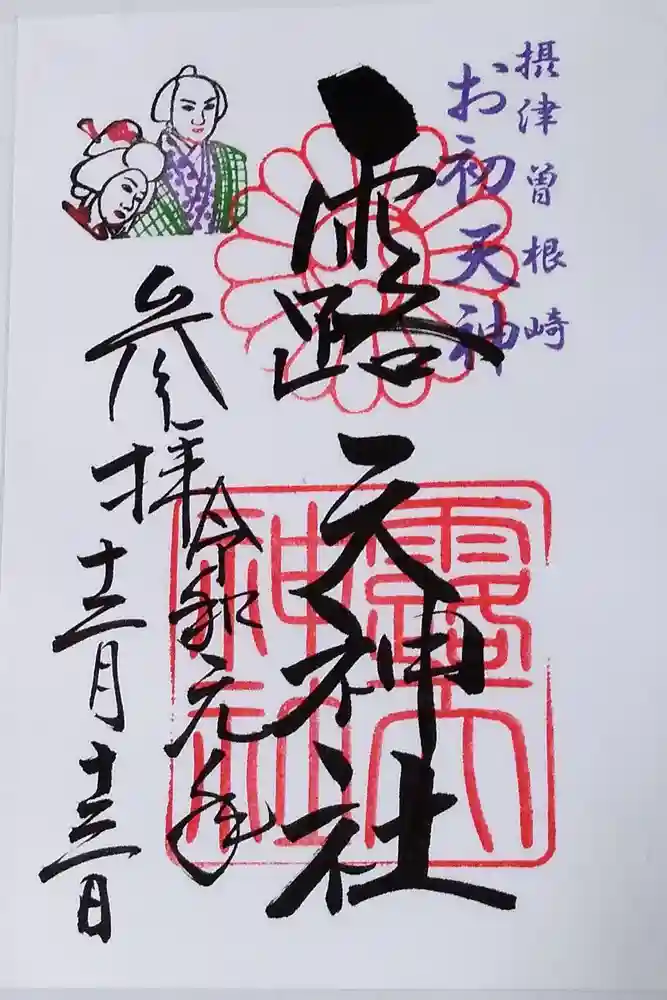 摂津 曽根崎
お初天神
露天神社
露天
神社
令和元年
参拝
十二月十三日